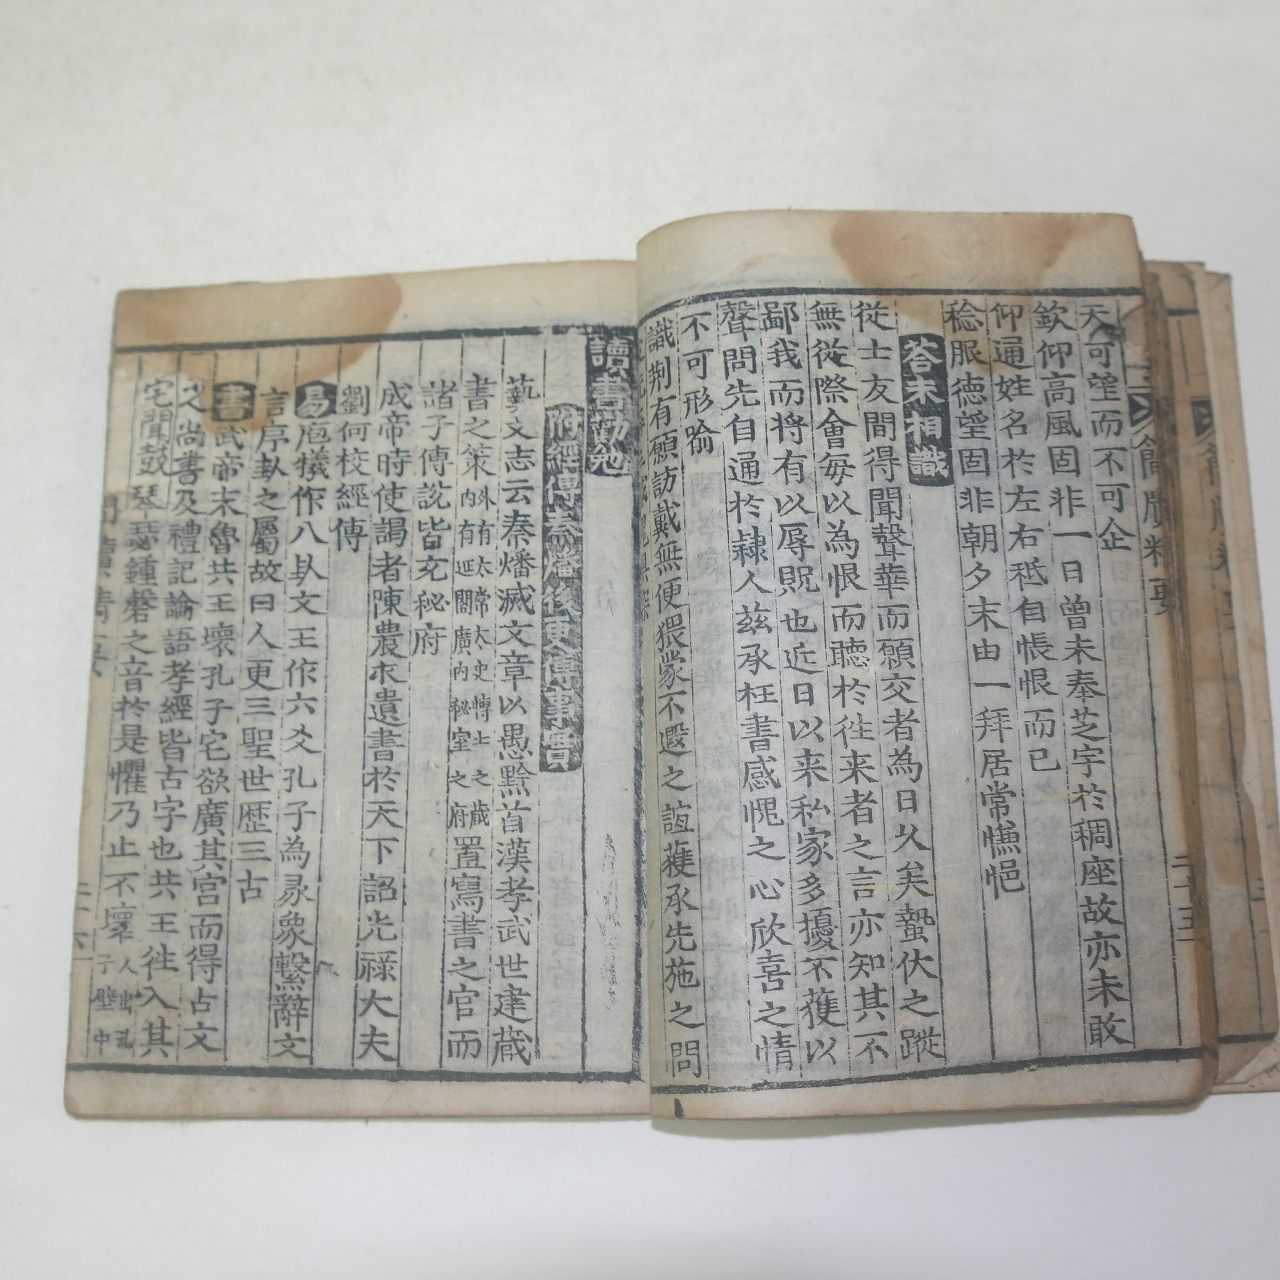 簡牘精要
二十五
天可望而不可企
欽仰高風固非一日曾未奉芝宇於稠座故亦未敢
仰通姓名於左右秪自悵恨而已
稔服德望固非朝夕末由一拜居常慊悒
荅未相識
從士友間得聞聲華而願交者為日久矣蟄伏之蹤
無從際會每以為恨而聽於徃来者之言亦知其不
鄙我而將有以辱貺也近日以来私家多擾不獲以
聲問先自通於隷人茲承枉書感愧之心欣喜之情
不可形喩
識荆有願訪戴無便猥蒙不遐之誼獲承先施之問
讀書勸勉
藝文志云秦燔滅文章以愚黔首漢孝武世建蔵
書之策外有太常太史博士之蔵内有延閣廣内秘室之府置寫書之官而
諸子傳說皆充秘府
成帝時使謁者陳農求遺書於天下詔光祿大夫
劉向校經傳
易庖犧作八卦文王作六爻孔子為彖象繫辭文
言序卦之屬故曰人更三聖世歷三古
書武帝末魯共王壞孔子宅欲廣其宮而得古文
尚書及禮記論語孝經皆古字也共王徃入其
宅聞鼓琴瑟鍾磬之音於是懼乃止不壞人出孔子壁中